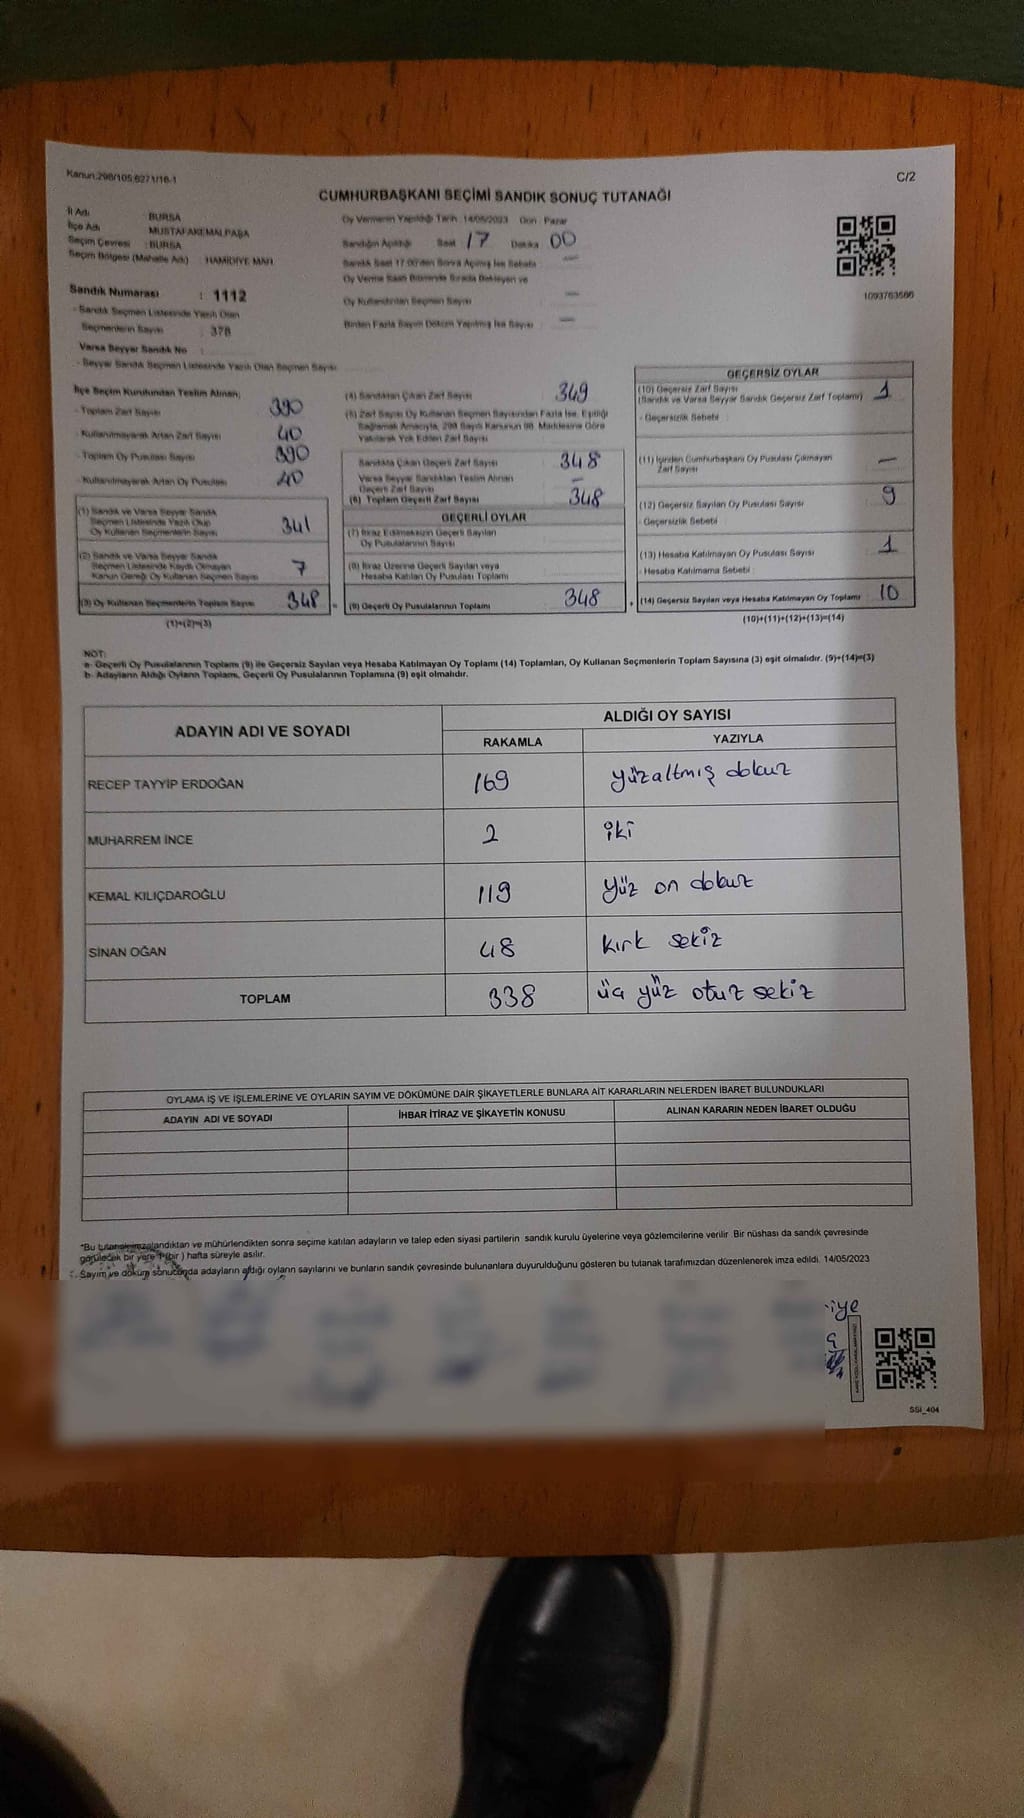 Kanun:298/105;6271/16-1
C/2
CUMHURBAŞKANI SEÇİMİ SANDIK SONUÇ TUTANAĞI
İl Adı : BURSA
İlçe Adı : MUSTAFAKEMALPAŞA
Seçim Çevresi : BURSA
Seçim Bölgesi (Mahalle Adı) : HAMİDİYE MAH.
Oy Vermenin Yapıldığı Tarih 14/05/2023 Gün : Pazar
Sandığın Açıldığı Saat 17 Dakika 00
Sandık Saat 17:00'den Sonra Açılmış İse Sebebi : —
Oy Verme Saati Bitiminde Sırada Bekleyen ve
Oy Kullandırılan Seçmen Sayısı —
Birden Fazla Sayım Döküm Yapılmış İse Sayısı : —
1093763566
Sandık Numarası : 1112
- Sandık Seçmen Listesinde Yazılı Olan
Seçmenlerin Sayısı : 378
Varsa Seyyar Sandık No :
- Seyyar Sandık Seçmen Listesinde Yazılı Olan Seçmen Sayısı :
İlçe Seçim Kurulundan Teslim Alınan;
- Toplam Zarf Sayısı 390
- Kullanılmayarak Artan Zarf Sayısı 40
- Toplam Oy Pusulası Sayısı 390
- Kullanılmayarak Artan Oy Pusulası 40
(1) Sandık ve Varsa Seyyar Sandık
Seçmen Listesinde Yazılı Olup
Oy Kullanan Seçmenlerin Sayısı 341
(2) Sandık ve Varsa Seyyar Sandık
Seçmen Listesinde Kaydı Olmayan
Kanun Gereği Oy Kullanan Seçmen Sayısı 7
(3) Oy Kullanan Seçmenlerin Toplam Sayısı 348
(1)+(2)=(3)
(4) Sandıktan Çıkan Zarf Sayısı 349
(5) Zarf Sayısı Oy Kullanan Seçmen Sayısından Fazla İse, Eşitliği
Sağlamak Amacıyla, 298 Sayılı Kanunun 98. Maddesine Göre
Yakılarak Yok Edilen Zarf Sayısı
Sandıkta Çıkan Geçerli Zarf Sayısı 348
Varsa Seyyar Sandıktan Teslim Alınan
Geçerli Zarf Sayısı —
(6) Toplam Geçerli Zarf Sayısı 348
GEÇERLİ OYLAR
(7) İtiraz Edilmeksizin Geçerli Sayılan
Oy Pusulalarının Sayısı
(8) İtiraz Üzerine Geçerli Sayılan veya
Hesaba Katılan Oy Pusulası Toplamı
= (9) Geçerli Oy Pusulalarının Toplamı 348
GEÇERSİZ OYLAR
(10) Geçersiz Zarf Sayısı 1
(Sandık ve Varsa Seyyar Sandık Geçersiz Zarf Toplamı)
- Geçersizlik Sebebi :
(11) İçinden Cumhurbaşkanı Oy Pusulası Çıkmayan
Zarf Sayısı —
(12) Geçersiz Sayılan Oy Pusulası Sayısı 9
- Geçersizlik Sebebi :
(13) Hesaba Katılmayan Oy Pusulası Sayısı 1
- Hesaba Katılmama Sebebi :
+ (14) Geçersiz Sayılan veya Hesaba Katılmayan Oy Toplamı 10
(10)+(11)+(12)+(13)=(14)
NOT:
a- Geçerli Oy Pusulalarının Toplamı (9) ile Geçersiz Sayılan veya Hesaba Katılmayan Oy Toplamı (14) Toplamları, Oy Kullanan Seçmenlerin Toplam Sayısına (3) eşit olmalıdır. (9)+(14)=(3)
b- Adayların Aldığı Oyların Toplamı, Geçerli Oy Pusulalarının Toplamına (9) eşit olmalıdır.
ADAYIN ADI VE SOYADI
ALDIĞI OY SAYISI
RAKAMLA YAZIYLA
RECEP TAYYİP ERDOĞAN 169 yüzaltmış dokuz
MUHARREM İNCE 2 iki
KEMAL KILIÇDAROĞLU 119 yüz on dokuz
SİNAN OĞAN 48 kırk sekiz
TOPLAM 338 üç yüz otuz sekiz
OYLAMA İŞ VE İŞLEMLERİNE VE OYLARIN SAYIM VE DÖKÜMÜNE DAİR ŞİKAYETLERLE BUNLARA AİT KARARLARIN NELERDEN İBARET BULUNDUKLARI
ADAYIN ADI VE SOYADI İHBAR İTİRAZ VE ŞİKAYETİN KONUSU ALINAN KARARIN NEDEN İBARET OLDUĞU
*Bu tutanak imzalandıktan ve mühürlendikten sonra seçime katılan adayların ve talep eden siyasi partilerin sandık kurulu üyelerine veya gözlemcilerine verilir. Bir nüshası da sandık çevresinde
görülecek bir yere 1 (bir ) hafta süreyle asılır.
- Sayım ve döküm sonucunda adayların aldığı oyların sayılarını ve bunların sandık çevresinde bulunanlara duyurulduğunu gösteren bu tutanak tarafımızdan düzenlenerek imza edildi. 14/05/2023
iye
SSI_404